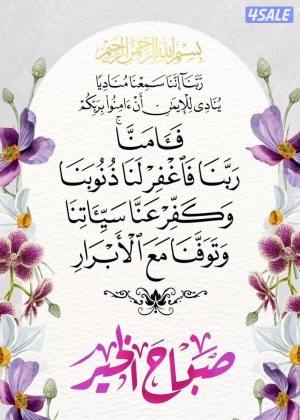 4SALE
بِسْمِ اللَّهِ الرَّحْمَنِ الرَّحِيمِ
رَّبَّنَا إِنَّنَا سَمِعْنَا مُنَادِيًا
يُنَادِي لِلْإِيمَٰنِ أَنْ ءَامِنُوا بِرَبِّكُمْ
فَـَٔامَنَّا ۚ
رَبَّنَا فَاغْفِرْ لَنَا ذُنُوبَنَا
وَكَفِّرْ عَنَّا سَيِّـَٔاتِنَا
وَتَوَفَّنَا مَعَ الْأَبْرَارِ
صباح الخير